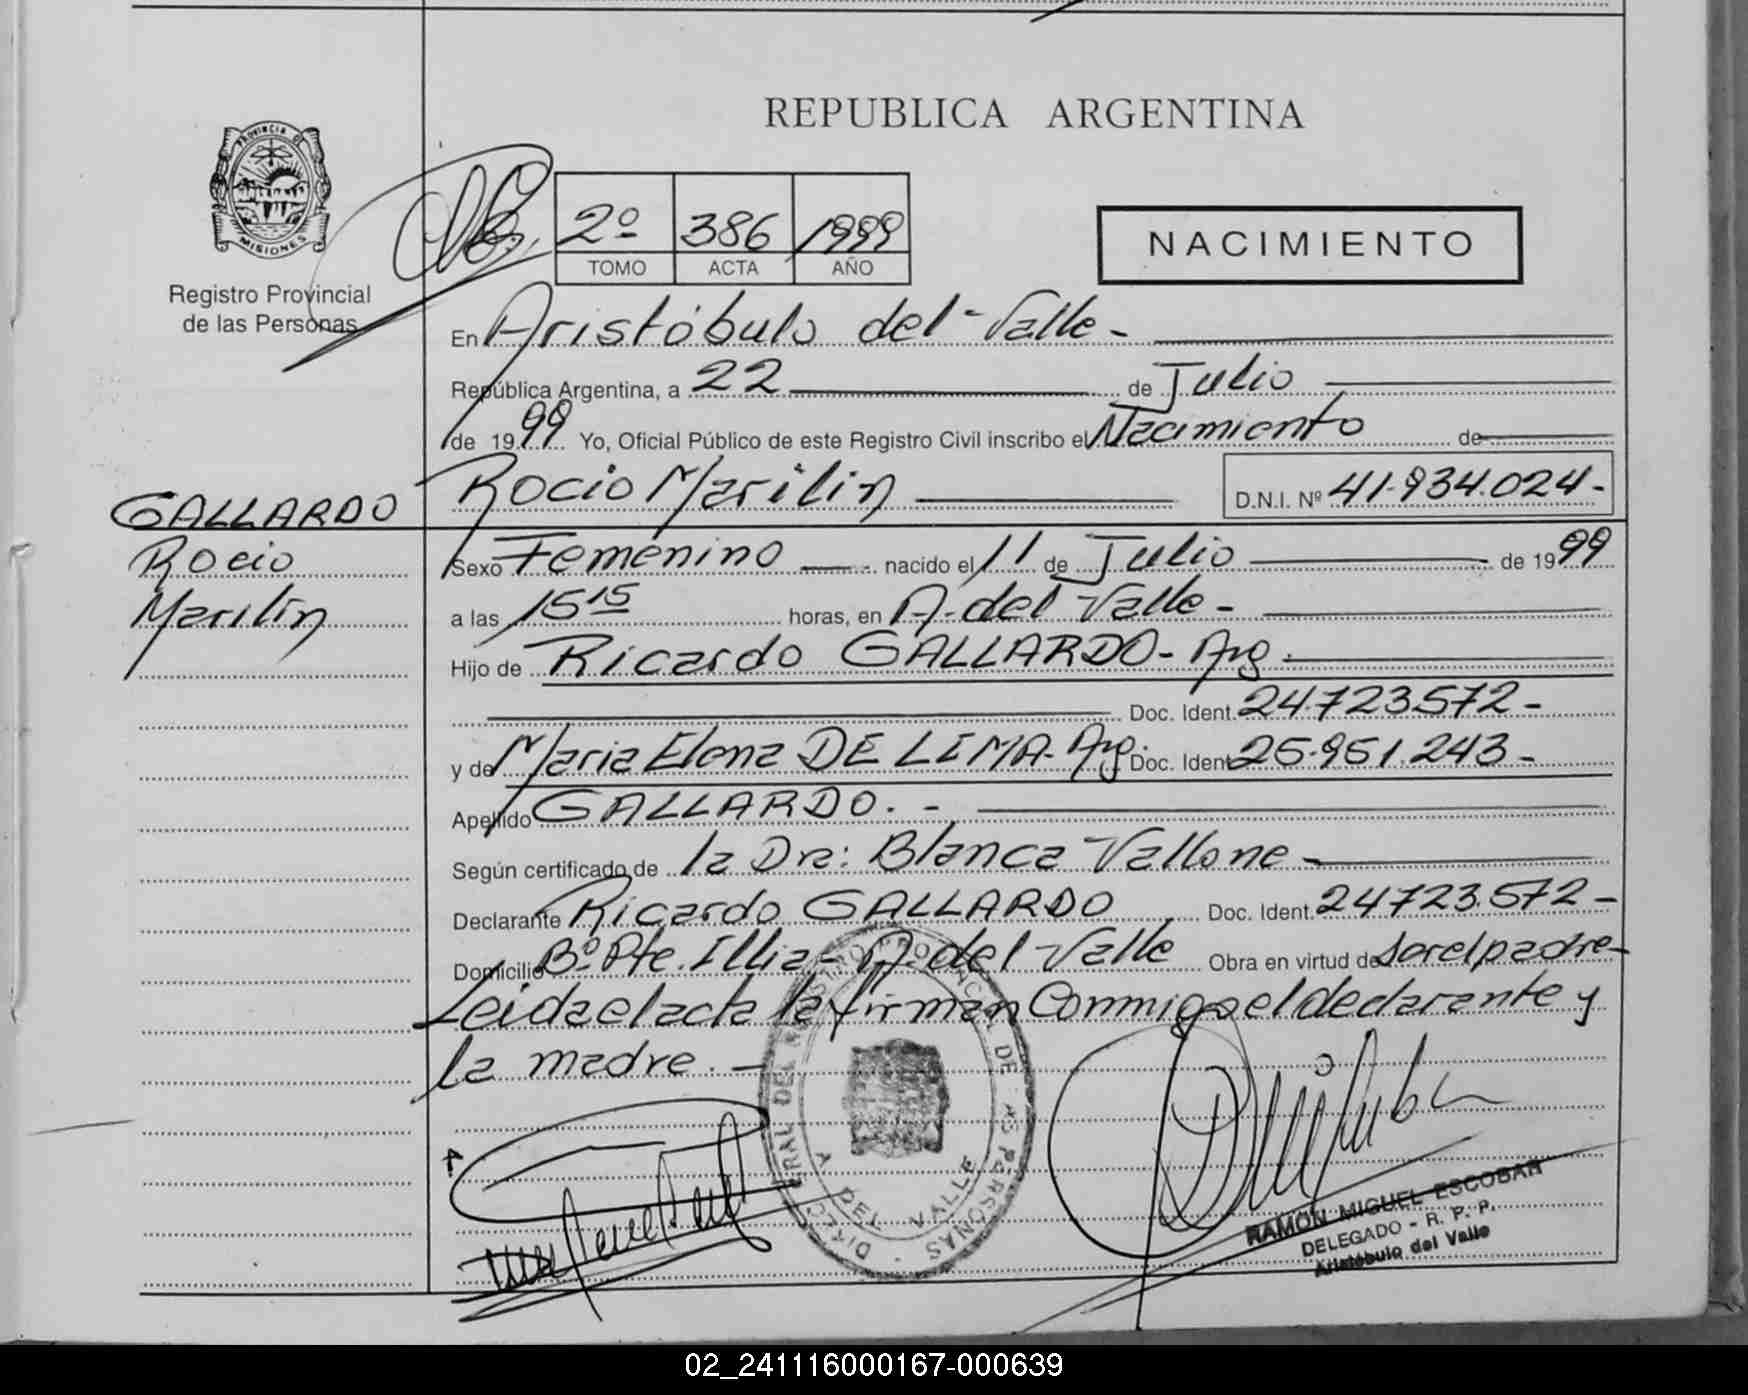 REPUBLICA ARGENTINA
PROVINCIA D
MISIONES
Registro Provincial
de las Personas
2º 386 1999
TOMO ACTA AÑO
NACIMIENTO
En Aristóbulo del Valle -
República Argentina, a 22 de Julio
de 1999 Yo, Oficial Público de este Registro Civil inscribo el Nacimiento de
Rocio Marilin D.N.I. Nº 41.934.024-
GALLARDO
Rocio
Marilin
Sexo Femenino nacido el 11 de Julio de 1999
a las 15 15 horas, en A. del Valle -
Hijo de Ricardo GALLARDO - Arg.
Doc. Ident. 24.723.572 -
y de Maria Elena DE LIMA - Arg. Doc. Ident. 25.951.243 -
Apellido GALLARDO. -
Según certificado de la Dra: Blanca Vallone -
Declarante Ricardo GALLARDO Doc. Ident. 24723.572 -
Domicilio Bº. Pte. Illia - A. del Valle Obra en virtud de ser el padre -
Leida el acta la firman Conmigo el declarante y
la madre. -
A DEL VALLE
RAMON MIGUEL ESCOBAR
DELEGADO - R. P. P.
Aristóbulo del Valle
02_241116000167-000639